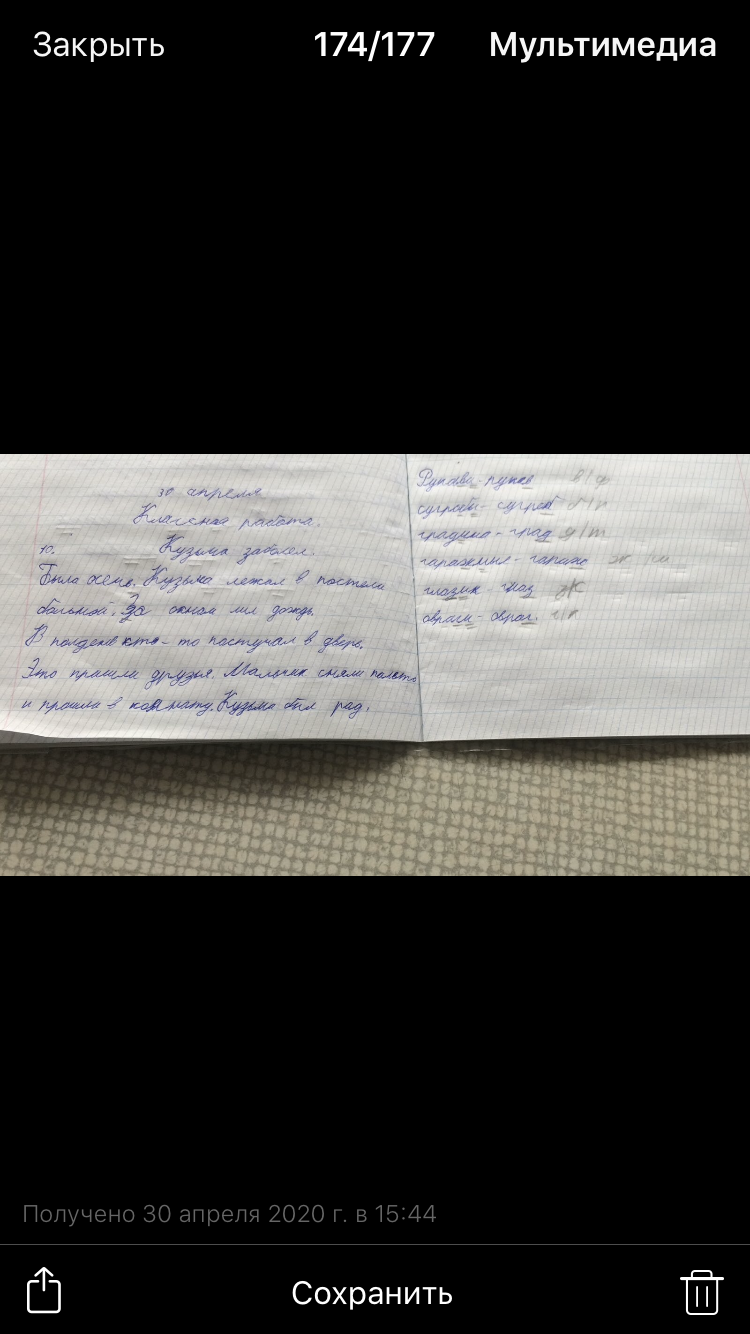 Закрыть 174/177 Мультимедиа
30 апреля
Классная работа.
10. Кузьма заболел.
Была осень. Кузьма лежал в постели
больной. За окном шёл дождь.
В полдень кто-то постучал в дверь.
Это пришли друзья. Мальчик сняли пальто
и прошли в комнату. Кузьма был рад.
в/ф
сугробы - сугроб б/п
град д/т
гаражные - гараж ж/ш
глазик глаз
овраги - овраг. г/к
Получено 30 апреля 2020 г. в 15:44
Сохранить